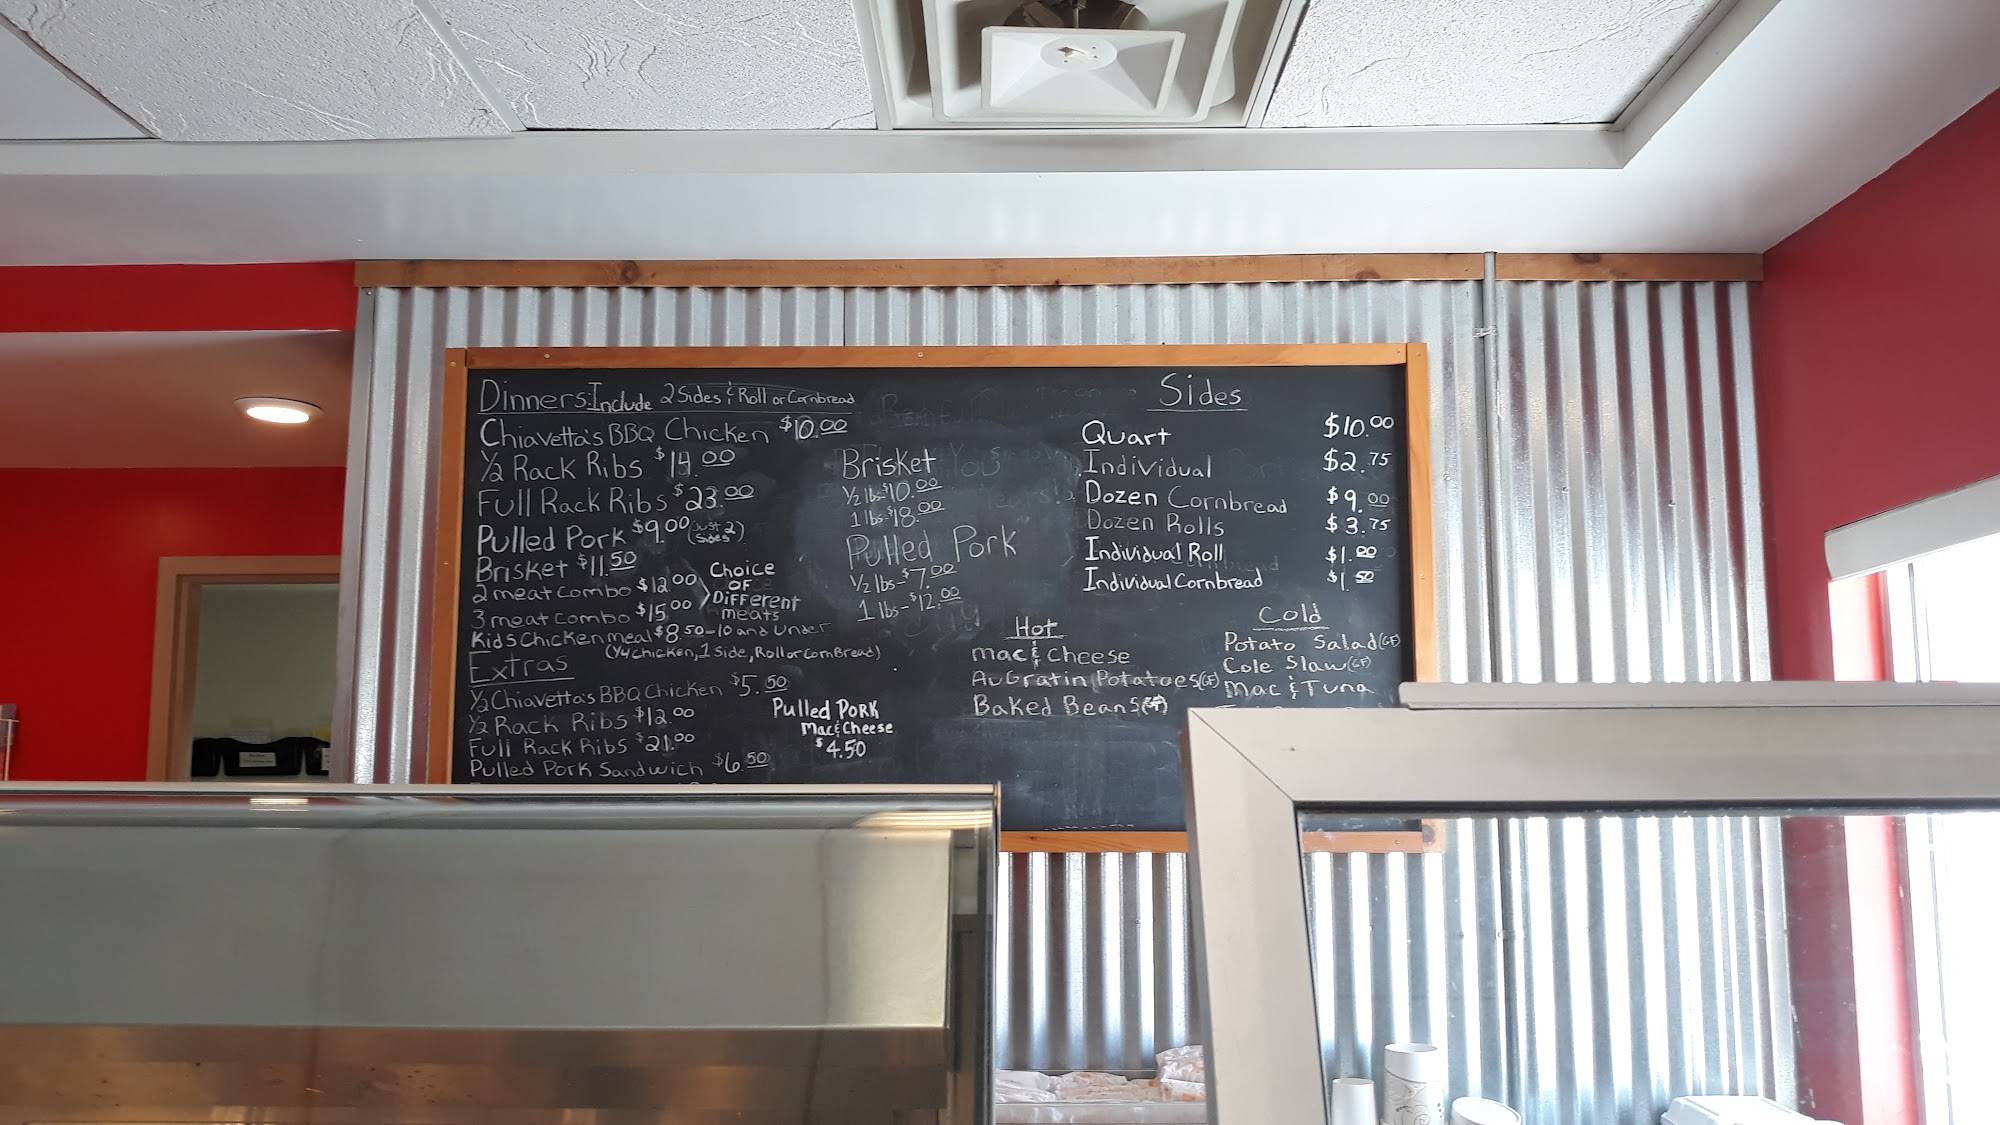 Dinners: Include 2 Sides & Roll or Cornbread
Chiavetta's BBQ Chicken $10.00
1/2 Rack Ribs $14.00
Full Rack Ribs $23.00
Pulled Pork $9.00 (Just 2 Sides)
Brisket $11.50
2 meat combo $12.00
3 meat combo $15.00
Choice
OF
Different
meats
Kids Chicken meal $8.50-10 and Under
(1/4 chicken, 1 Side, Roll or CornBread)
Extras
1/2 Chiavetta's BBQ Chicken $5.50
1/2 Rack Ribs $12.00
Full Rack Ribs $21.00
Pulled Pork Sandwich $6.50
Pulled Pork
Mac & Cheese
$4.50
Brisket
1/2 lb-$10.00
1 lbs-$18.00
Pulled Pork
1/2 lbs-$7.00
1 lbs-$12.00
Sides
Quart $10.00
Individual $2.75
Dozen Cornbread $9.00
Dozen Rolls $3.75
Individual Roll $1.00
Individual Cornbread $1.50
Hot
Mac & Cheese
Au Gratin Potatoes (GF)
Baked Beans (GF)
Cold
Potato Salad (GF)
Cole Slaw (GF)
Mac & Tuna